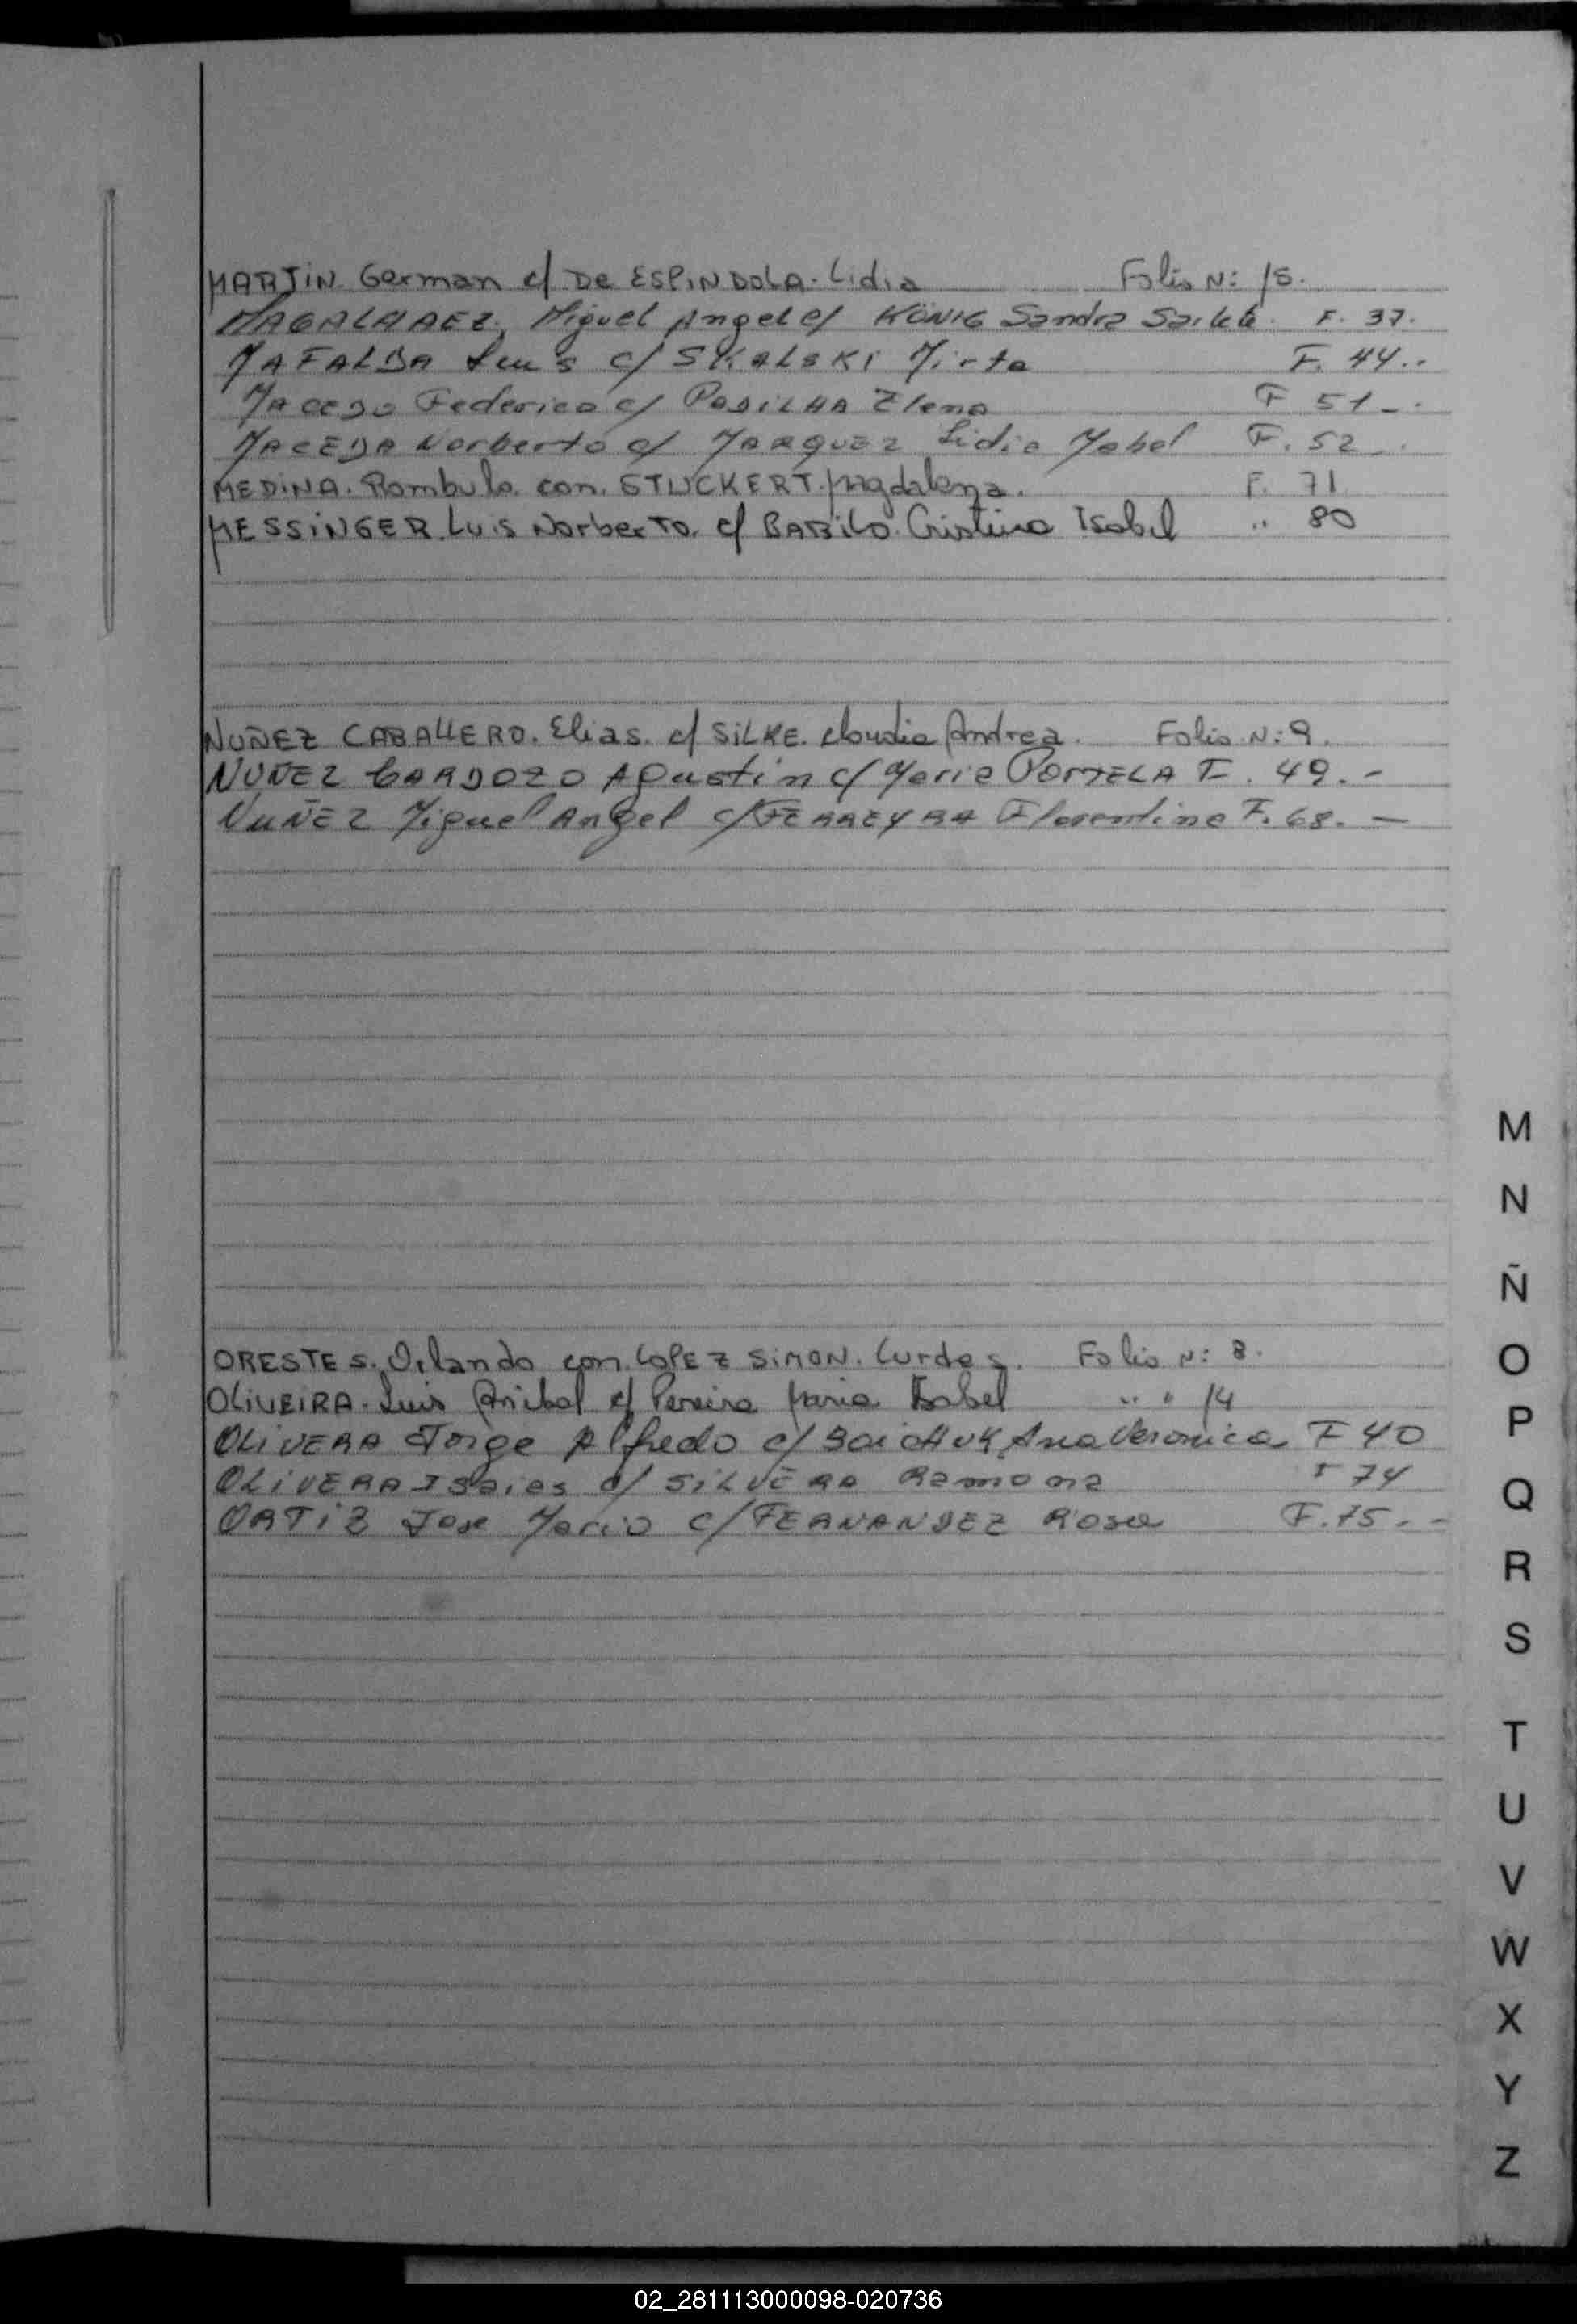 MARTIN. German c/ De ESPINDOLA. Lidia Folio N: 15.
MAGALHAEZ, Miguel Angel c/ KÖNIG Sandra F. 37.
MAFALDA Luis c/ SKALSKI Mirta F. 44..
MACEDO Federico c/ PADILHA Elena F 51_.
MACEDA Norberto c/ MARQUEZ Lidia Mabel F. 52_.
MEDINA. Rombulo. con. STUCKERT. Magdalena. F. 71
MESSiNGER. Luis Norberto. c/ BABILO. Cristina Isabel .. 80
NUÑEZ CABALLERO. Elias. c/ SILKE. Claudia Andrea. Folio N: 9.
NUÑEZ CARDOZO Agustin c/ Maria PORTELA F. 49.-
NUÑEZ Miguel Angel c/ FERREYRA Florentina F. 68. —
ORESTES. Orlando con. LOPEZ SIMON. Lurdes. Folio N: 8.
OLIVEIRA. Luis Anibal c/ Pereira Maria Isabel .. " 14
OLIVERA Jorge Alfredo c/ Ana Veronica F 40
OLIVERA Isaias c/ SILVERA Ramona F 74
ORTIZ Jose Mario c/ FERNANDEZ Rosa F. 75.-
M
N
Ñ
O
P
Q
R
S
T
U
V
W
X
Y
Z
02_281113000098-020736